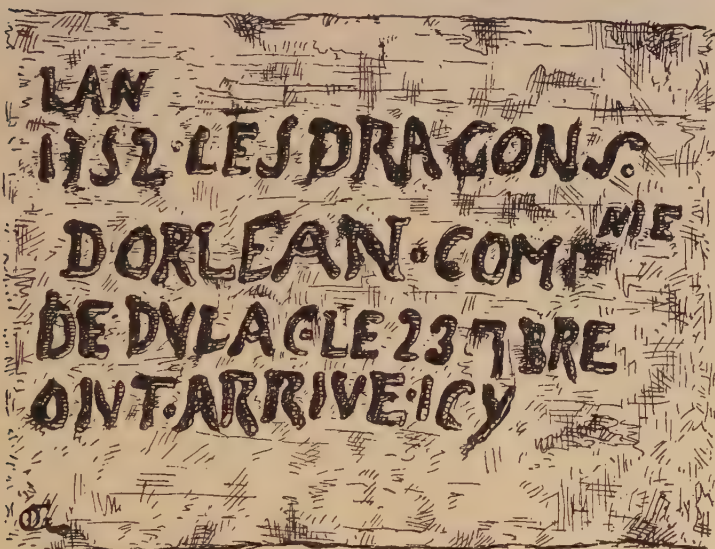 LAN
1752·LES DRAGONS·
DORLEAN·COMPNIE
DE DVLAC LE 23 7BRE
ONT·ARRIVE·ICY